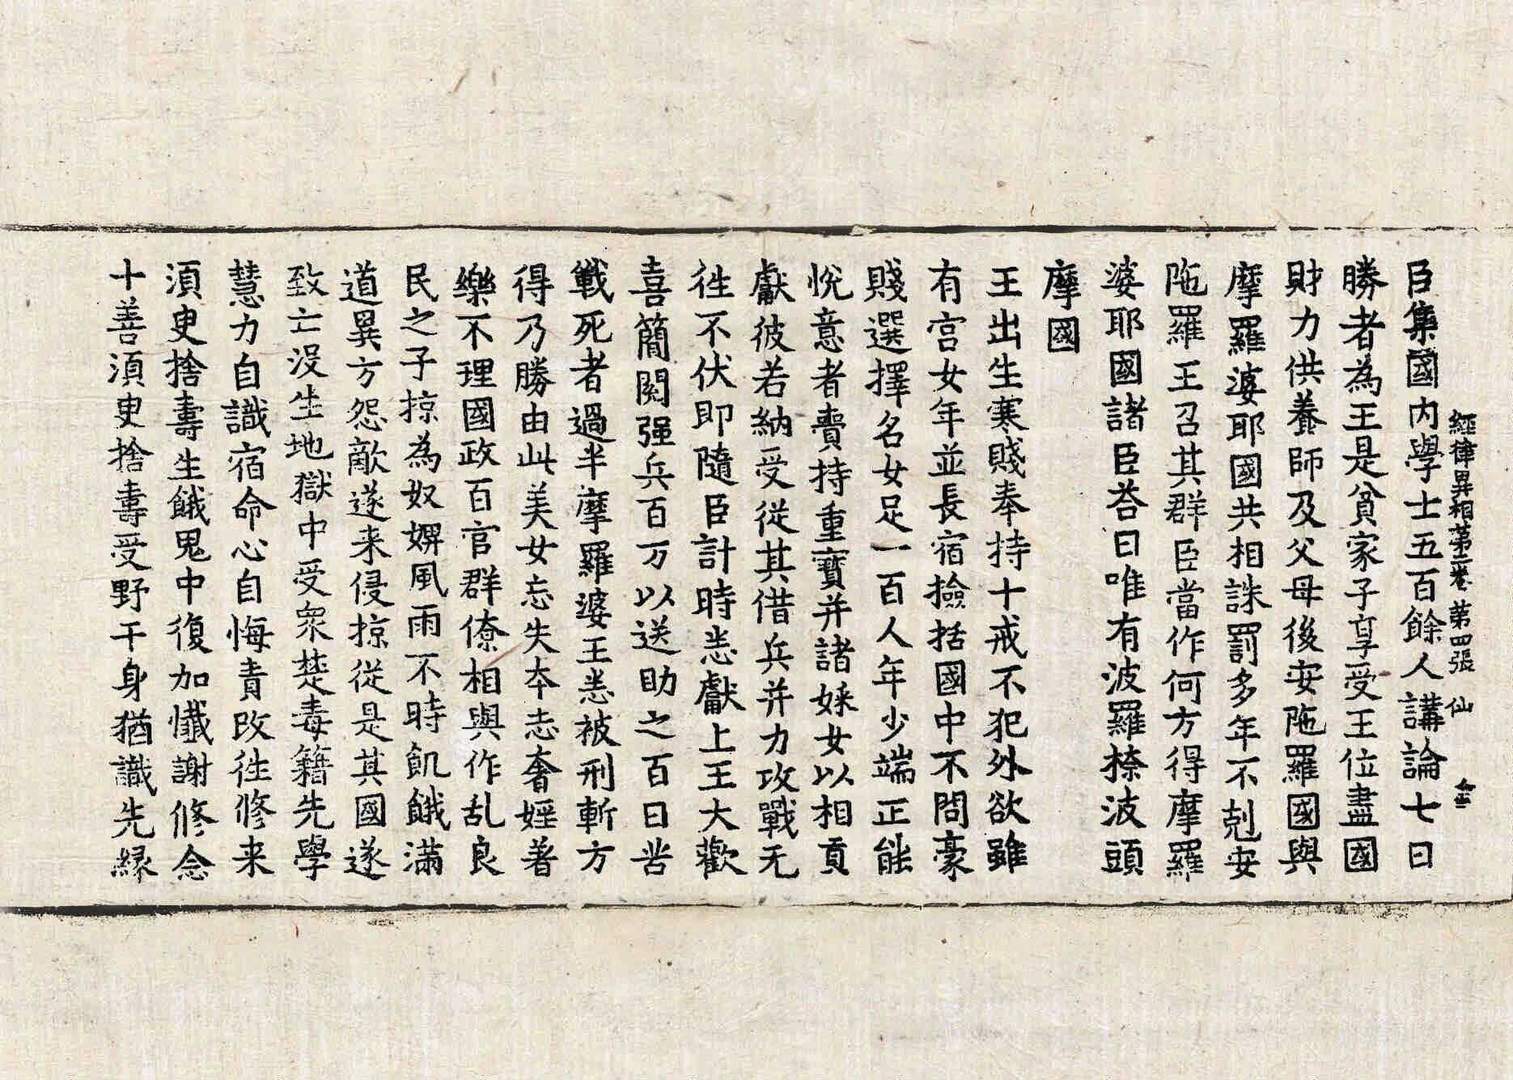 經律異相第二卷 第四張 仙
臣集國內學士五百餘人講論七日
勝者為王是貧家子享受王位盡國
財力供養師及父母後安陁羅國與
摩羅婆耶國共相誅罰多年不剋安
陁羅王召其群臣當作何方得摩羅
婆耶國諸臣荅曰唯有波羅捺波頭
摩國
王出生寒賤奉持十戒不犯外欲雖
有宮女年並長宿撿括國中不問豪
賤選擇名女足一百人年少端正能
悅意者賷持重寶并諸婇女以相貢
獻彼若納受從其借兵并力攻戰无
徃不伏即隨臣計時悉獻上王大歡
喜簡閱强兵百万以送助之百日苦
戰死者過半摩羅婆王悉被刑斬方
得乃勝由此美女忘失本志奢婬著
樂不理國政百官群僚相與作乱良
民之子掠為奴婢風雨不時飢餓滿
道異方怨敵遂来侵掠從是其國遂
致亡沒生地獄中受眾楚毒籍先學
慧力自識宿命心自悔責改徃修来
湏臾捨壽生餓鬼中復加懴謝修念
十善湏臾捨壽受野干身猶識先縁